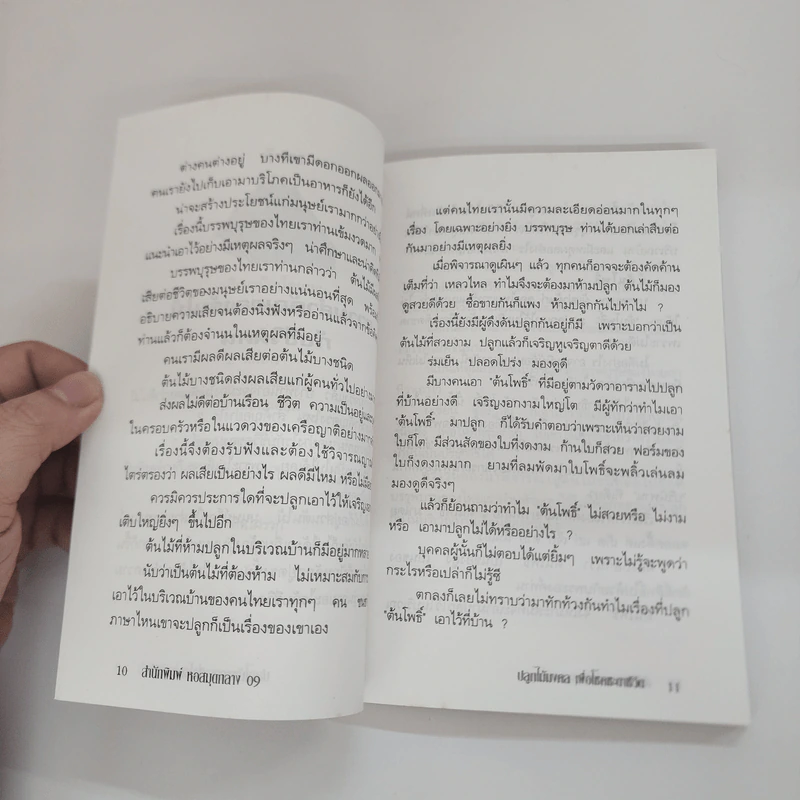 ต่างคนต่างอยู่ บางทีเขามีดอกออกผลออก
คนเรายังไปเก็บเอามาบริโภคเป็นอาหารก็ยังได้อีก
น่าจะสร้างประโยชน์แก่มนุษย์เรามากกว่าอย่าง
เรื่องนี้บรรพบุรุษของไทยเราท่านเข้มงวดมาก
แนะนำเอาไว้อย่างมีเหตุผลจริงๆ น่าศึกษาและน่า
บรรพบุรุษของไทยเราท่านกล่าวว่า ต้นไม้มี
เสียต่อชีวิตของมนุษย์เราอย่างแน่นอนที่สุด
อธิบายความเสียจนต้องนิ่งฟังหรืออ่านแล้วจาก
ท่านแล้วก็ต้องจำนนในเหตุผลที่มีอยู่
คนเรามีผลดีผลเสียต่อต้นไม้บางชนิด
ต้นไม้บางชนิดส่งผลเสียแก่ผู้คนทั่วไปอย่าง
ส่งผลไม่ดีต่อบ้านเรือน ชีวิต ความเป็นอยู่และ
ในครอบครัวหรือในแวดวงของเครือญาติอย่างมาก
เรื่องนี้จึงต้องรับฟังและต้องใช้วิจารณญาณ
ไตร่ตรองว่า ผลเสียเป็นอย่างไร ผลดีมีไหม หรือไม่มี
ควรมิควรประการใดที่จะปลูกเอาไว้ให้เจริญ
เติบใหญ่ยิ่งๆ ขึ้นไปอีก
ต้นไม้ที่ห้ามปลูกในบริเวณบ้านก็มีอยู่มาก
นับว่าเป็นต้นไม้ที่ต้องห้าม ไม่เหมาะสมกับการ
เอาไว้ในบริเวณบ้านของคนไทยเราทุกๆ คน
ภาษาไหนเขาจะปลูกก็เป็นเรื่องของเขาเอง
10 สำนักพิมพ์ หอสมุดกลาง 09
แต่คนไทยเรานั้นมีความละเอียดอ่อนมากในทุกๆ
เรื่อง โดยเฉพาะอย่างยิ่ง บรรพบุรุษ ท่านได้บอกเล่าสืบต่อ
กันมาอย่างมีเหตุผลยิ่ง
เมื่อพิจารณาดูเผินๆ แล้ว ทุกคนก็อาจจะต้องคัดค้าน
เต็มที่ว่า เหลวไหล ทำไมจึงจะต้องมาห้ามปลูก ต้นไม้ก็มอง
ดูสวยดีด้วย ซื้อขายกันก็แพง ห้ามปลูกกันไปทำไม ?
เรื่องนี้ยังมีผู้ดึงดันปลูกกันอยู่ก็มี เพราะบอกว่าเป็น
ต้นไม้ที่สวยงาม ปลูกแล้วก็เจริญหูเจริญตาดีด้วย
ร่มเย็น ปลอดโปร่ง มองดูดี
มีบางคนเอา "ต้นโพธิ์" ที่มีอยู่ตามวัดวาอารามไปปลูก
ที่บ้านอย่างดี เจริญงอกงามใหญ่โต มีผู้ทักว่าทำไมเอา
"ต้นโพธิ์" มาปลูก ก็ได้รับคำตอบว่าเพราะเห็นว่าสวยงาม
ใบก็โต มีส่วนสัดของใบที่งดงาม ก้านใบก็สวย ฟอร์มของ
ใบก็งดงามมาก ยามที่ลมพัดมาใบโพธิ์จะพลิ้วเล่นลม
มองดูดีจริงๆ
แล้วก็ย้อนถามว่าทำไม "ต้นโพธิ์" ไม่สวยหรือ ไม่งาม
หรือ เอามาปลูกไม่ได้หรืออย่างไร ?
บุคคลผู้นั้นก็ไม่ตอบได้แต่ยิ้มๆ เพราะไม่รู้จะพูดว่า
กระไรหรือเปล่าก็ไม่รู้ซี
ตกลงก็เลยไม่ทราบว่ามาทักท้วงกันทำไมเรื่องที่ปลูก
"ต้นโพธิ์" เอาไว้ที่บ้าน ?
ปลูกไม้มงคล เพื่อโชคชะตาชีวิต 11